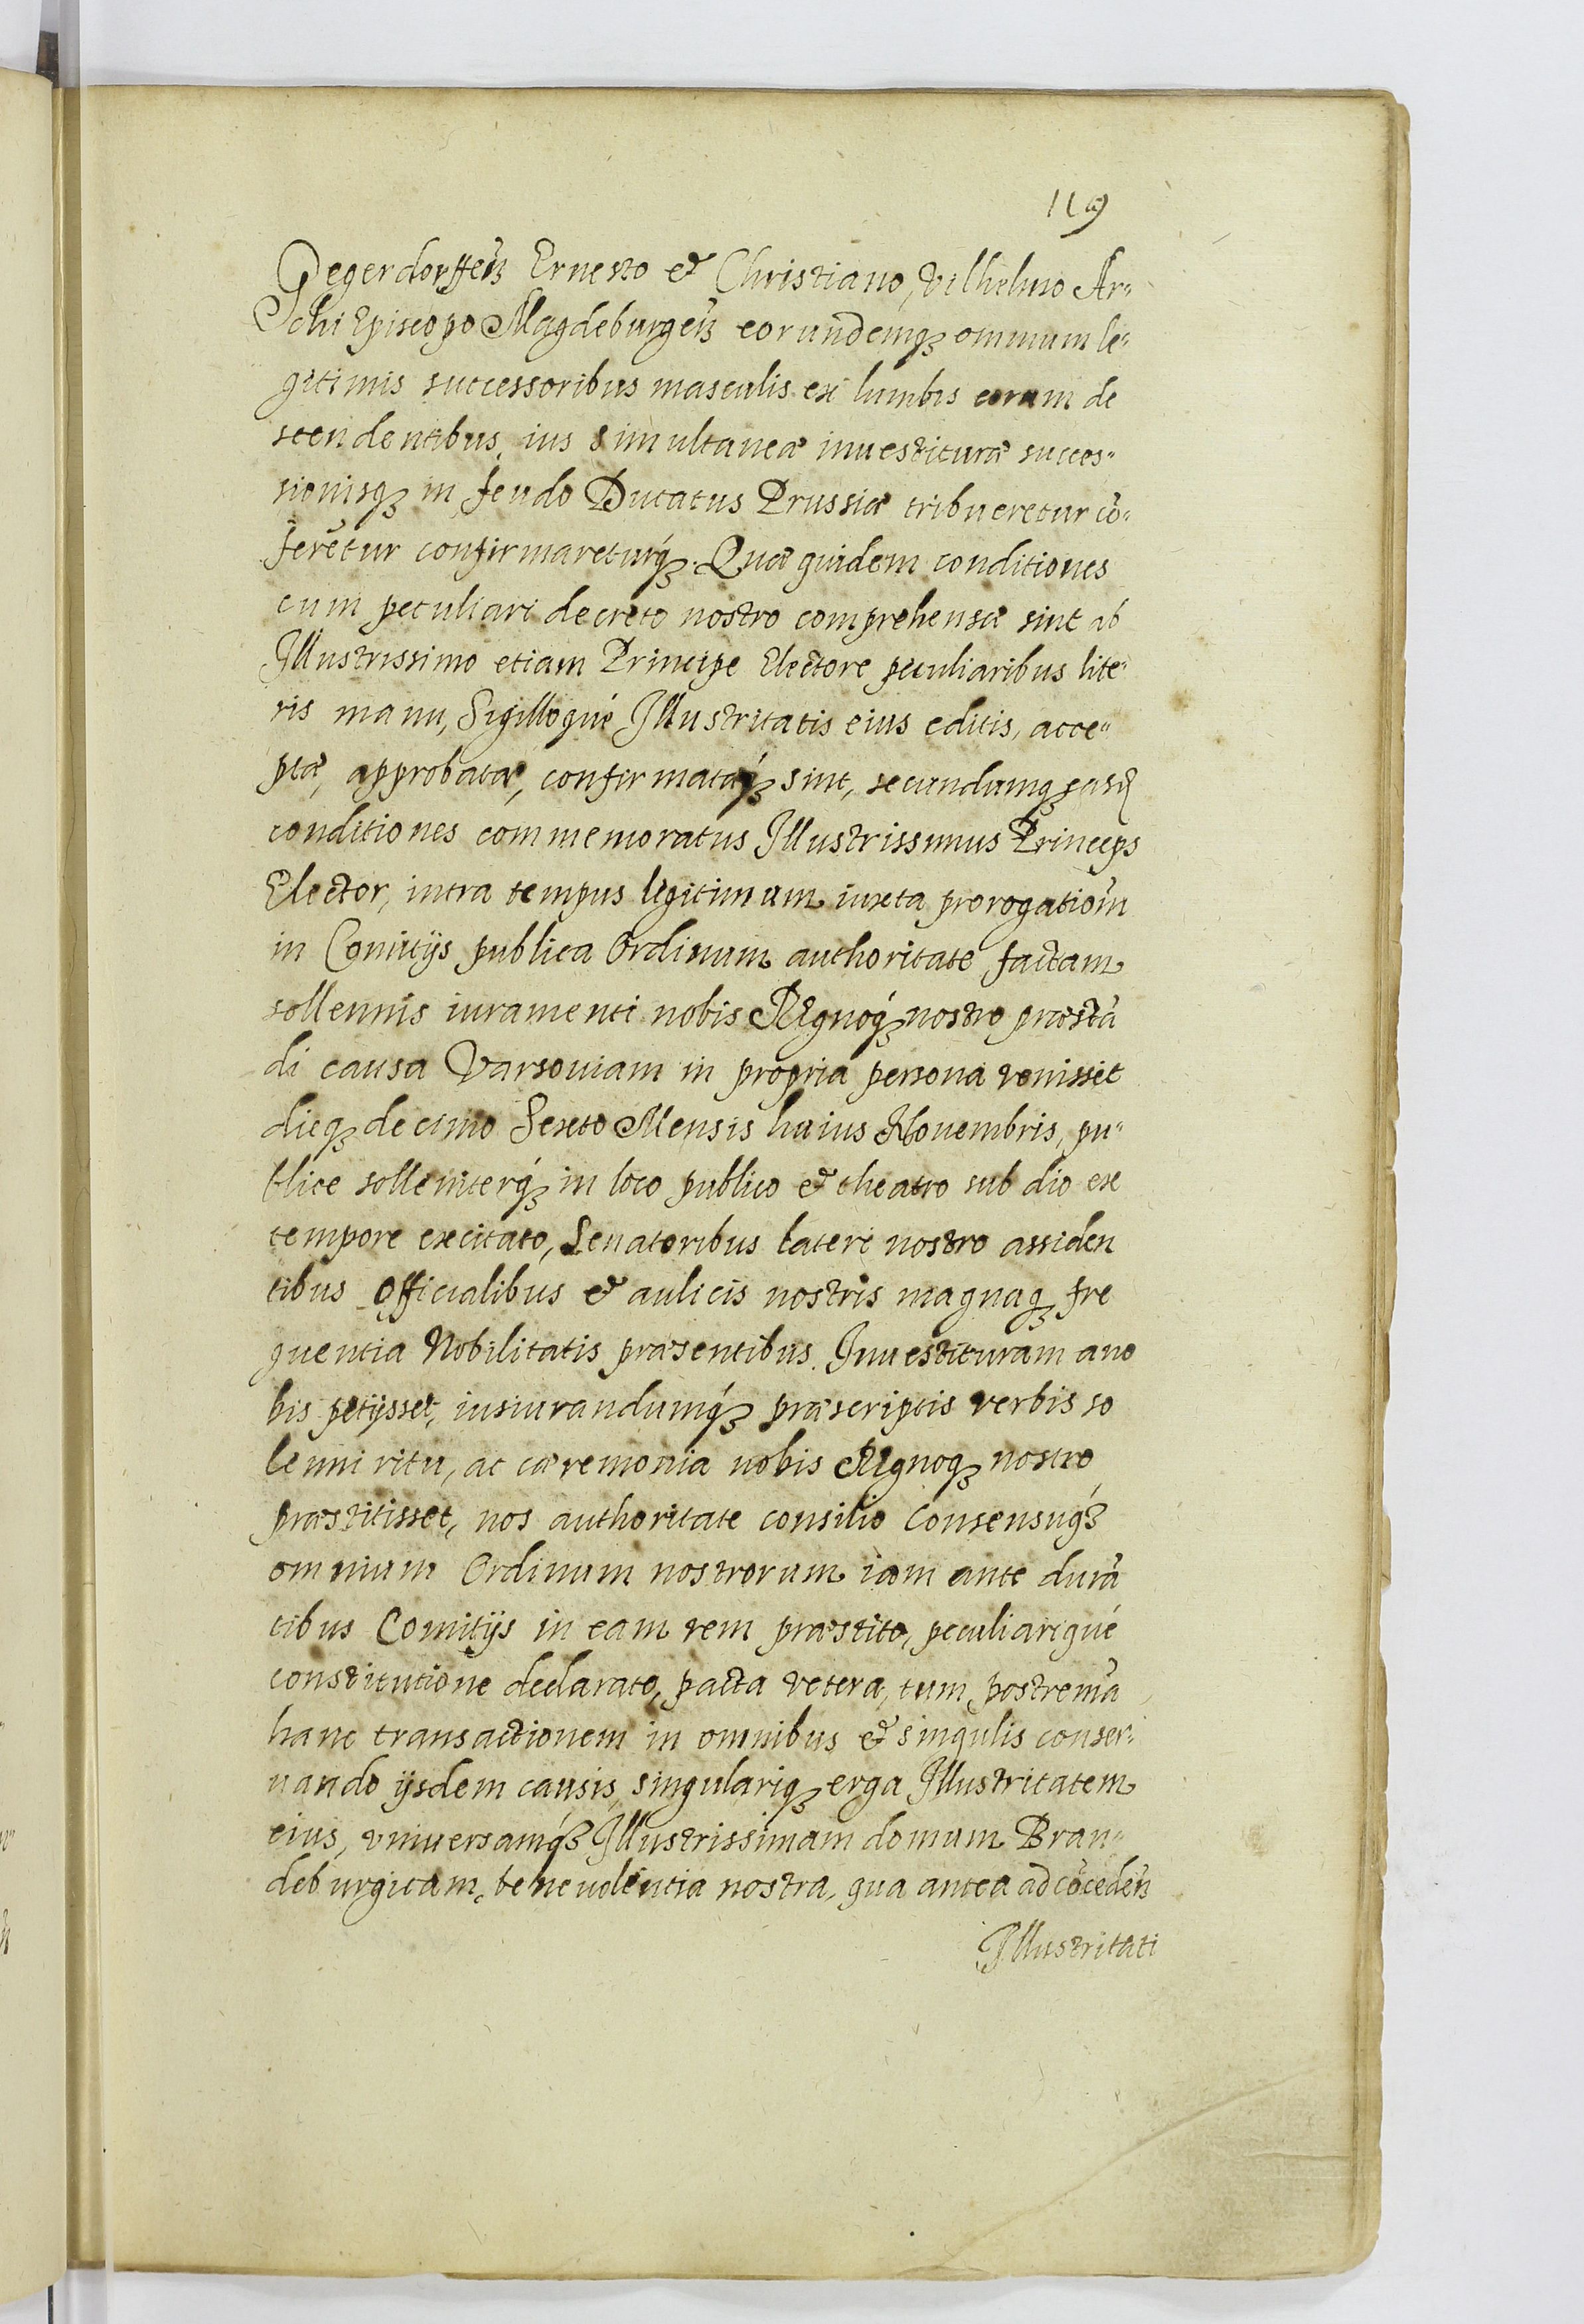 119
Gegerdorffeñ Ernesto et Christiano, Vilhelmo Ar-
chi Episcopo Magdeburgeñ eorundemq₃ omnium le-
gitimis successoribus masculis ex lumbis eorum de
scendentibus, ius simultaneæ inuestituræ succes-
sionisq₃ in feudo Ducatus Prussiæ tribueretur cō-
ferētur confirmareturq́₃. Quæ quidem conditiones
cum peculiari decreto nostro comprehensæ sint ab
Illustrissimo etiam Principe Electore peculiaribus lite-
ris manu, Sigilloqué Illustritatis eius editis, acce-
ptæ, approbatæ, confirmatæq́₃ sint, secundumq₃ easd̃
conditiones commemoratus Illustrissimus Princeps
Elector, intra tempus legitimum iuxta prorogatiōm
in Comitijs publica Ordinum authoritate factam
sollennis iuramenti nobis Regnoq́₃ nostro præstā
di causa Varsouiam in propria persona venisset
dieq₃ decimo Sexto Mensis huius Nouembris, pu-
blice solleniterq́₃ in loco publico et theatro sub dio ex
tempore excitato, Senatoribus lateri nostro assiden
tibus Officialibus et aulicis nostris magnaq₃ fre
quentia Nobilitatis præsentibus. Inuestituram ano
bis petijsset, iusiurandumq́₃ præscriptis verbis so
lenni ritu, ac cæremonia nobis Regnoq₃ nostro
præstitisset, nos authoritate consilio Consensuq́₃
omnium Ordinum nostrorum iam ante durā
tibus Comitijs in eam rem præstito, peculiariqué
constitutione declarato, pacta vetera, tum postremā
hanc transactionem in omnibus et singulis conser-
uando ijsdem causis, singulariq₃ erga Illustritatem
eius, vniuersamq́₃ Illustrissimam domum Bran-
deburgicam, beneuolentia nostra, qua antea ad cōcedeñ
Illustritati